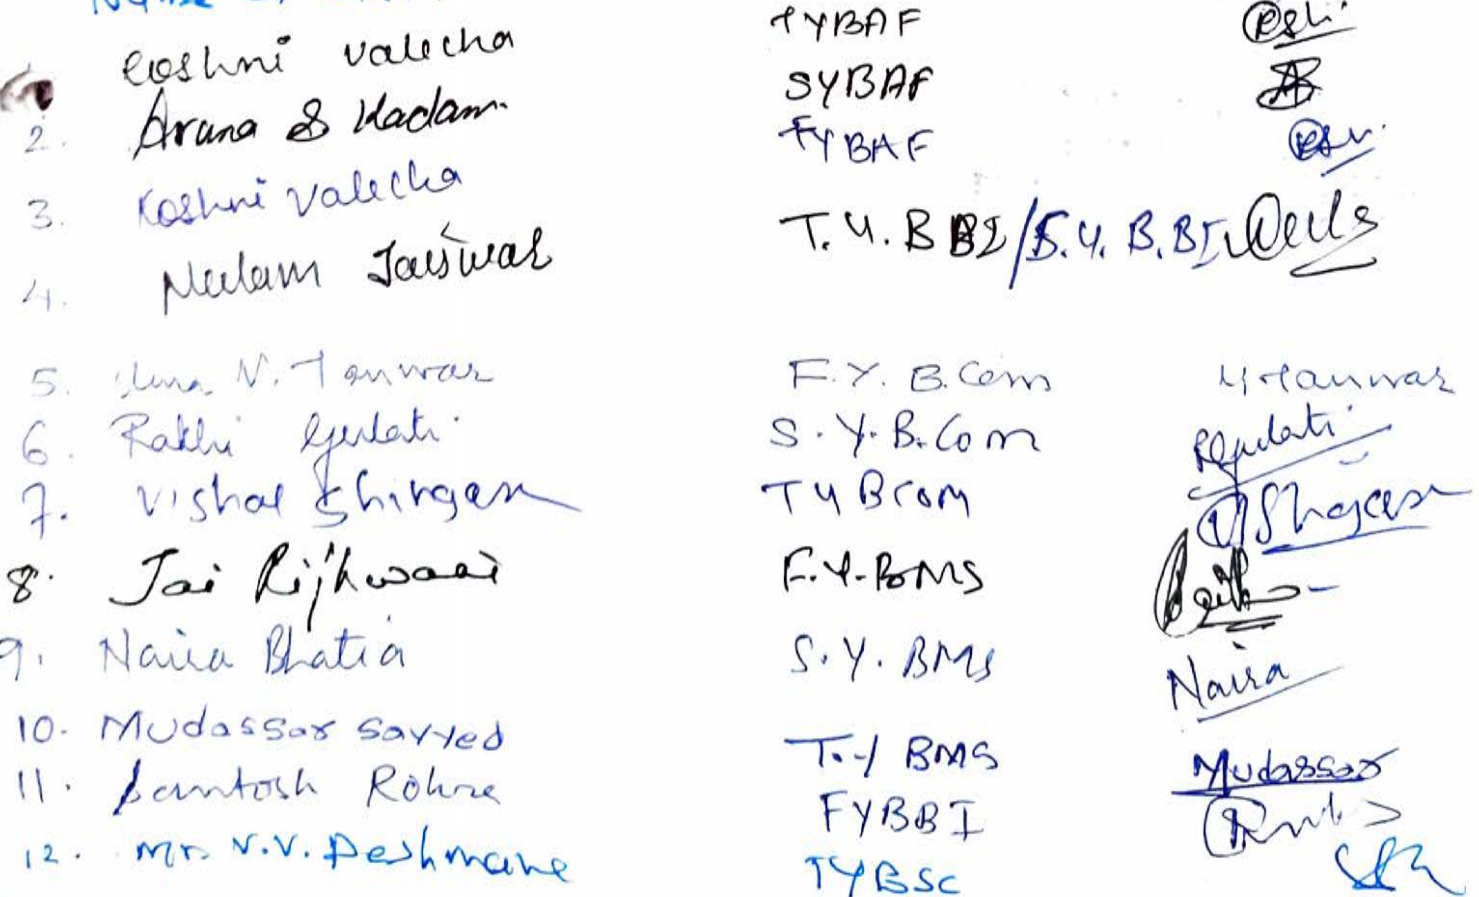 Roshni Valecha TYBAF
2. Aruna S Kadam SYBAF
3. Roshni Valecha FYBAF
4. Neelam Jaiswar T.Y.B BI/S.Y.B.BI
5. N. Tanwar F.Y. B.Com Y Tanwar
6. Rakhi Gulati S.Y.B.Com RGulati
7. Vishal Shingan TYBCOM
8. Jai Rijhwani F.Y-BMS
9. Naira Bhatia S.Y. BMS Naira
10. Mudassar Sayyed T.Y BMS Mudassar
11. Santosh Rohra FYBBI
12. Mr. V.V. Deshmane TYBSC